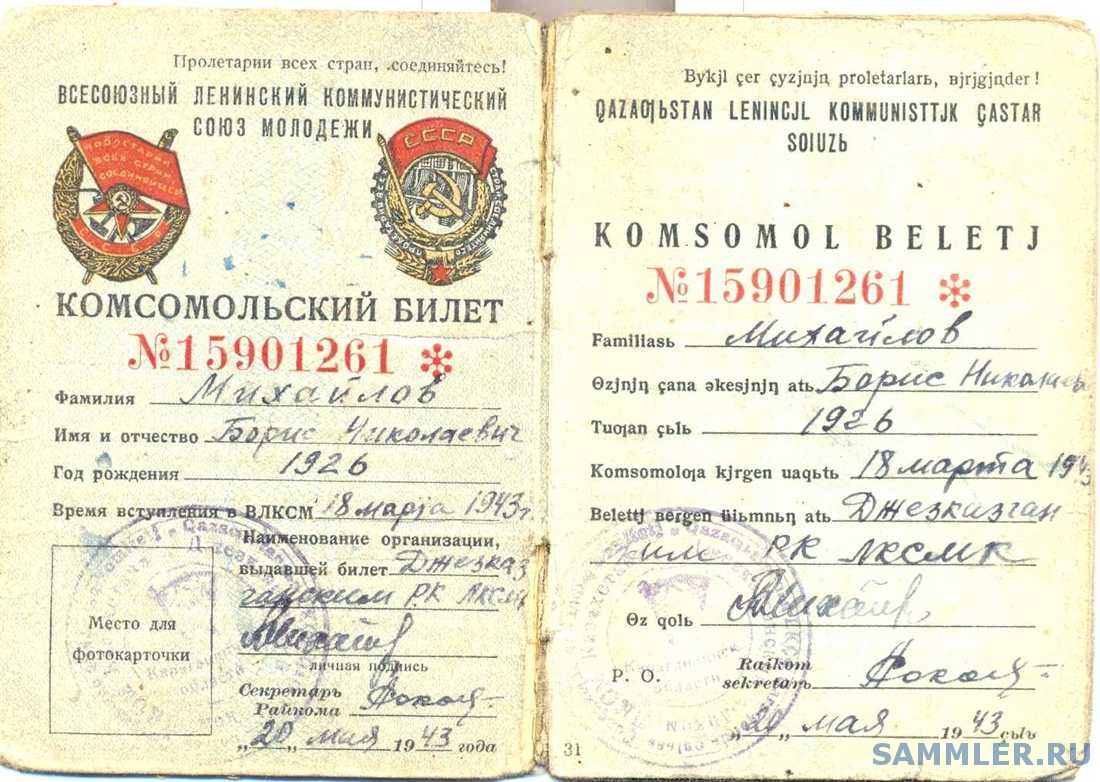 Пролетарии всех стран, соединяйтесь!
ВСЕСОЮЗНЫЙ ЛЕНИНСКИЙ КОММУНИСТИЧЕСКИЙ
СОЮЗ МОЛОДЕЖИ
ПРОЛЕТАРИИ
ВСЕХ СТРАН
СОЕДИНЯЙТЕСЬ
СССР
СССР
КОМСОМОЛЬСКИЙ БИЛЕТ
№15901261 *
Фамилия Михайлов
Имя и отчество Борис Николаевич
Год рождения 1926
Время вступления в ВЛКСМ 18 марта 1943г
Наименование организации,
выдавшей билет Джезказ
ганским РК ЛКСМК
Место для
фотокарточки
личная подпись
Секретарь
Райкома
"20" мая 1943 года
Bykjl çer çyzjnjꞑ proletarlarь, вjrjgjꞑder!
QAZAƢЬSTAN LENINCJL KOMMUNISTTJK ÇASTAR
SOIUZЬ
KOMSOMOL BELETJ
№15901261 *
Familiasь Михайлов
Ɵzjnjꞑ çana əkesjnjꞑ atь Борис Николаеви
Tuƣan çьlь 1926
Komsomolƣa kjrgen uaqьtь 18 марта 1943
Belettj вergen üiьmnьꞑ atь Джезказган
ским РК ЛКСМК
Ɵz qolь
P. O.
Raikom
sekretarь
"20" мая 1943 çьlь
31
SAMMLER.RU